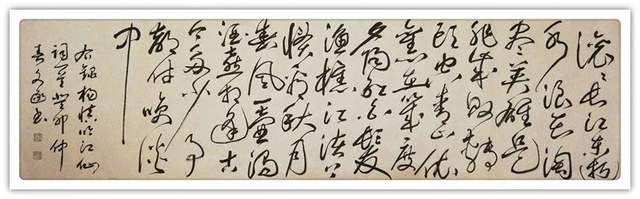 滚滚长江东逝
水浪花淘
尽英雄是
非成败转
头空青山依
旧在几度
夕阳红白发
渔樵江渚上
惯看秋月
春风一壶浊
酒喜相逢古
今多少事
都付笑谈
中
右録杨慎临江仙
词 癸卯仲
春 书